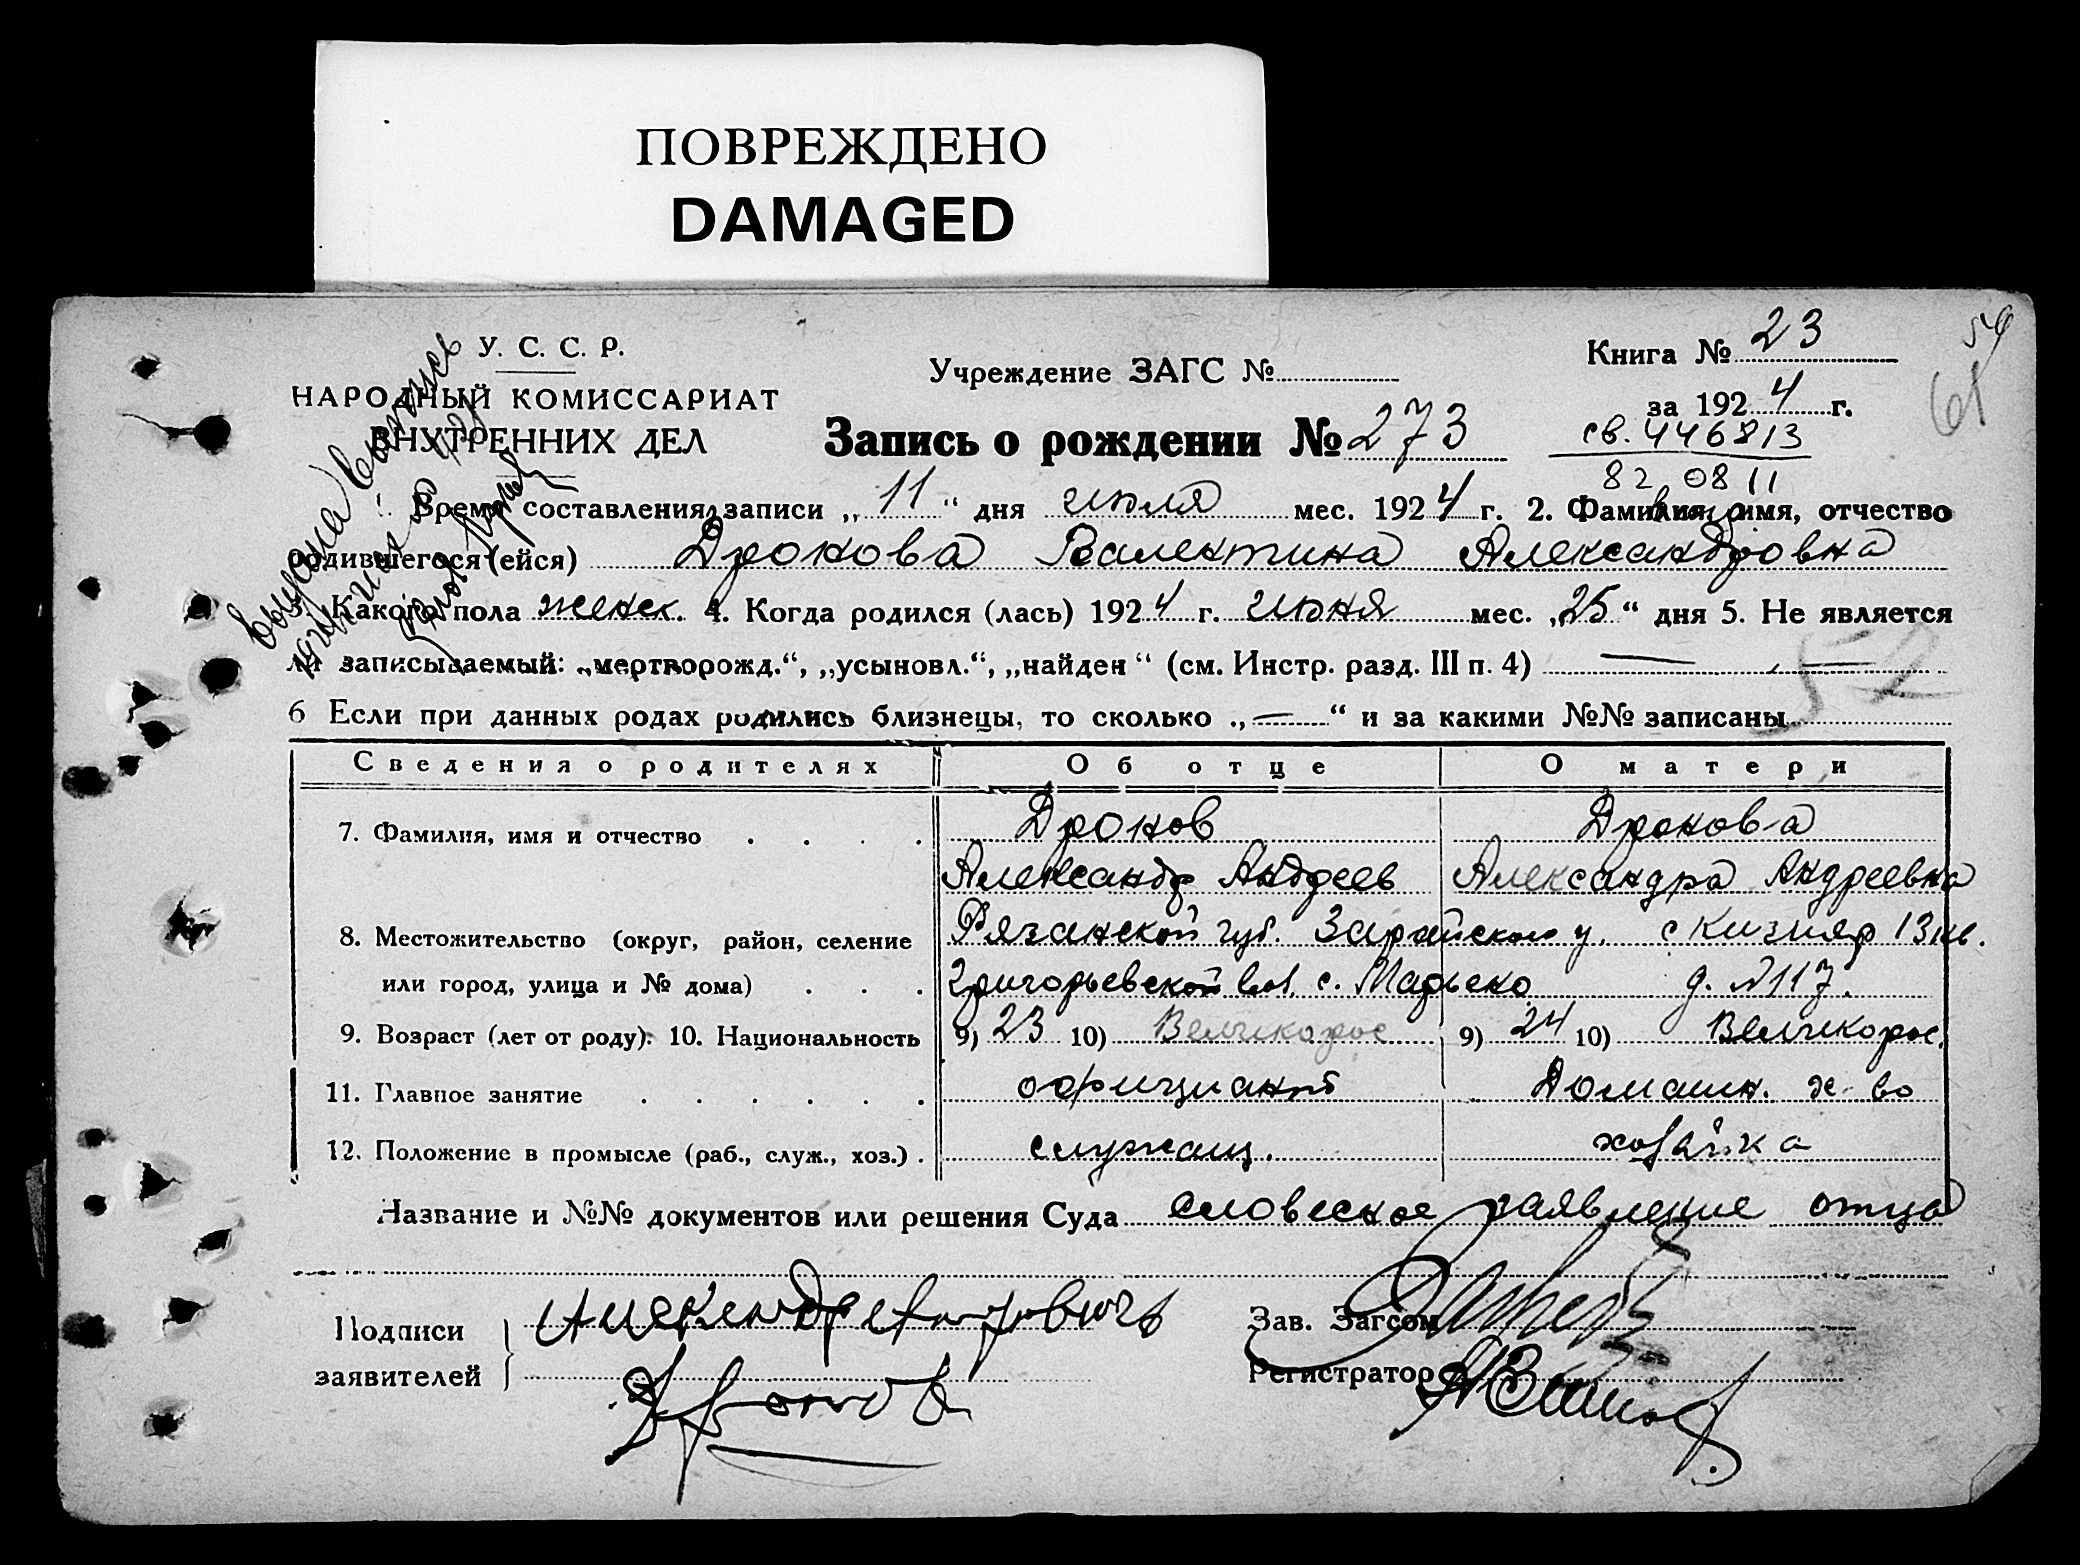 ПОВРЕЖДЕНО
DAMAGED
У. С. С. Р.
НАРОДНЫЙ КОМИССАРИАТ
ВНУТРЕННИХ ДЕЛ
Учреждение ЗАГС №
Книга № 23
59
61
за 1924 г.
Запись о рождении № 273
св. 446813
82 08 11
Время составления записи „ 11 “ дня июля мес. 1924 г. 2. Фамилия, имя, отчество
родившегося (ейся) Дрокова Валентина Александровна
Какого пола женск. 4. Когда родился (лась) 1924 г. июня мес. „25“ дня 5. Не является
ли записываемый: „мертворожд.“, „усыновл.“, „найден“ (см. Инстр. разд. III п. 4) —
52
6 Если при данных родах родились близнецы, то сколько „—“ и за какими №№ записаны
Сведения о родителях Об отце О матери
7. Фамилия, имя и отчество Дроков Дрокова
Александр Андреев Александра Андреевна
8. Местожительство (округ, район, селение Рязанской губ. Зарайского у. с Кизияр 13 кв.
или город, улица и № дома) Григорьевской вол. с. д. №117.
9. Возраст (лет от роду). 10. Национальность 9) 23 10) Великорос 9) 24 10) Великорос.
11. Главное занятие официант Домашн. х-во
12. Положение в промысле (раб., служ., хоз.) служащ. хозяйка
Название и №№ документов или решения Суда словеское заявление отца
Подписи
заявителей
Дроков
Зав. Загсом
Регистратор